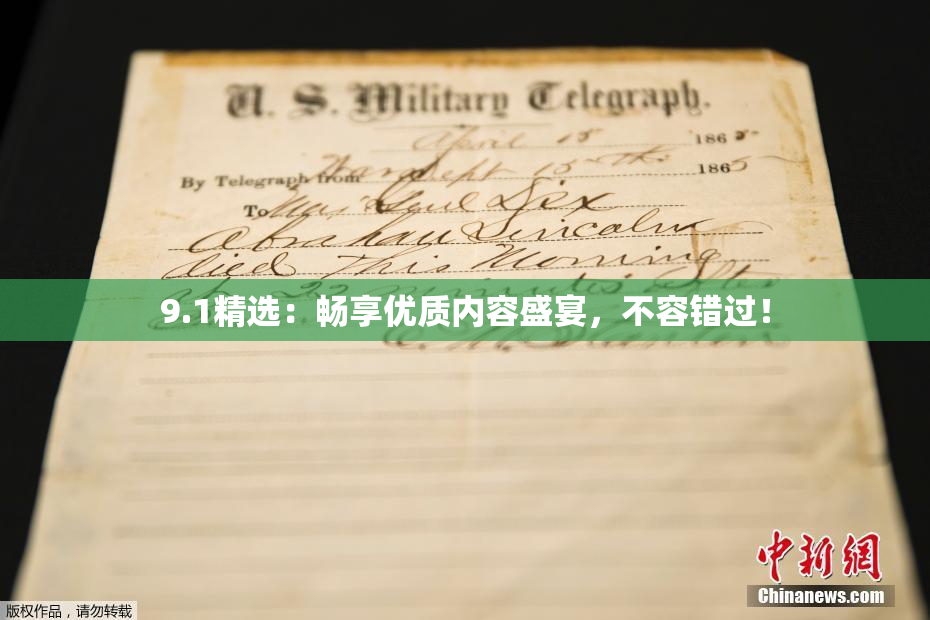 U. S. Military Telegraph.
April 15 1865
By Telegraph from War Dept 15th 1865
To Maj Genl Dix
Abraham Lincoln
died This Morning
at 22 minutes after
9.1精选：畅享优质内容盛宴，不容错过！
E. M. Stanton
中新网
Chinanews.com
版权作品，请勿转载